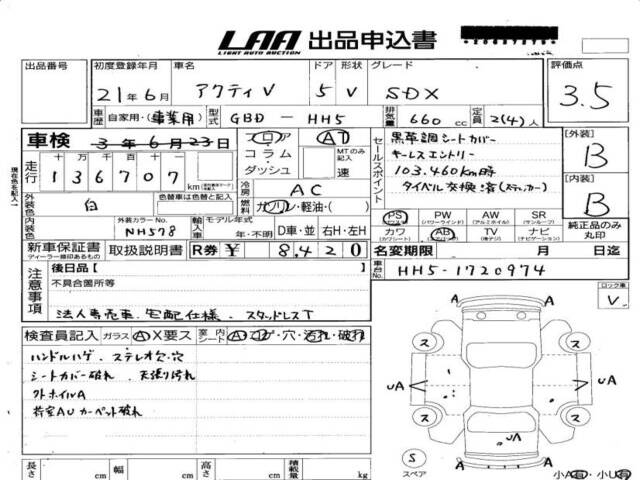 LAA 出品申込書
LIGHT AUTO AUCTION
出品番号 初度登録年月 車名 ドア 形状 グレード 評価点
21年6月 アクティV 5 V SDX 3.5
車歴 自家用・事業用 型式 GBD - HH5 排気量 660 cc 定員 2(4)人
車検 3年6月23日
フロア AT
コラム MTのみ記入
ダッシュ 速
走行 十 万 千 百 十
136707 km
現在色を記入
外装色 白 色替車は色替と記入
冷房 AC
燃料 ガソリン・軽油・( )
外装カラーNo. NH578
輸入車 モデル年式 年・不明 D車・並 右H・左H
セールスポイント
黒革調シートカバー
キーレスエントリー
103,460km時
タイベル交換済(ステッカー)
[外装] B
[内装] B
PS (パワステ) PW (パワーウインド) AW (アルミホイル) SR (サンルーフ)
カワ (カワシート) AB (エアバッグ) TV (純テレ) ナビ (ナビゲーション)
純正品のみ丸印
新車保証書 取扱説明書 R券 ¥ 8,420
ディーラー捺印あるもの
名変期限 月 日迄
車台No. HH5-1720974
注意事項
後日品[ ]
不具合箇所等
法人専売車 宅配仕様、スタッドレスT
ロック車
V
検査員記入 ガラス A X要ス 室内 シート A コゲ・穴・汚れ・破れ
ハンドルハゲ、ステレオ穴・穴
シートカバー破れ、天張り汚れ
フトホイルA
荷室AU カーペット破れ
A A
ス ス
UA UA
ス ス
UA
S
スペア
A A
小A有・小U有
長さ cm 幅 cm 高さ cm 積載量 kg